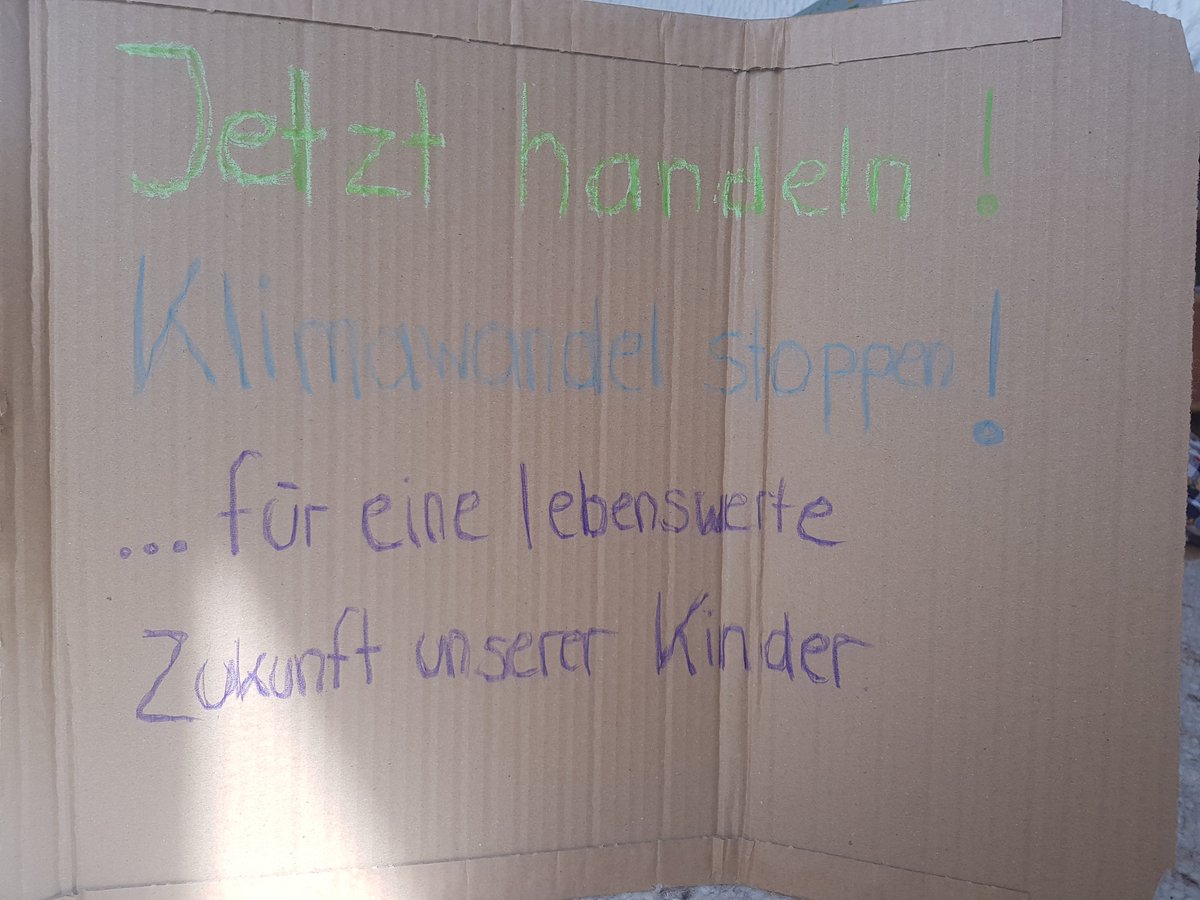 Jetzt handeln!
Klimawandel stoppen!
... für eine lebenswerte
Zukunft unserer Kinder